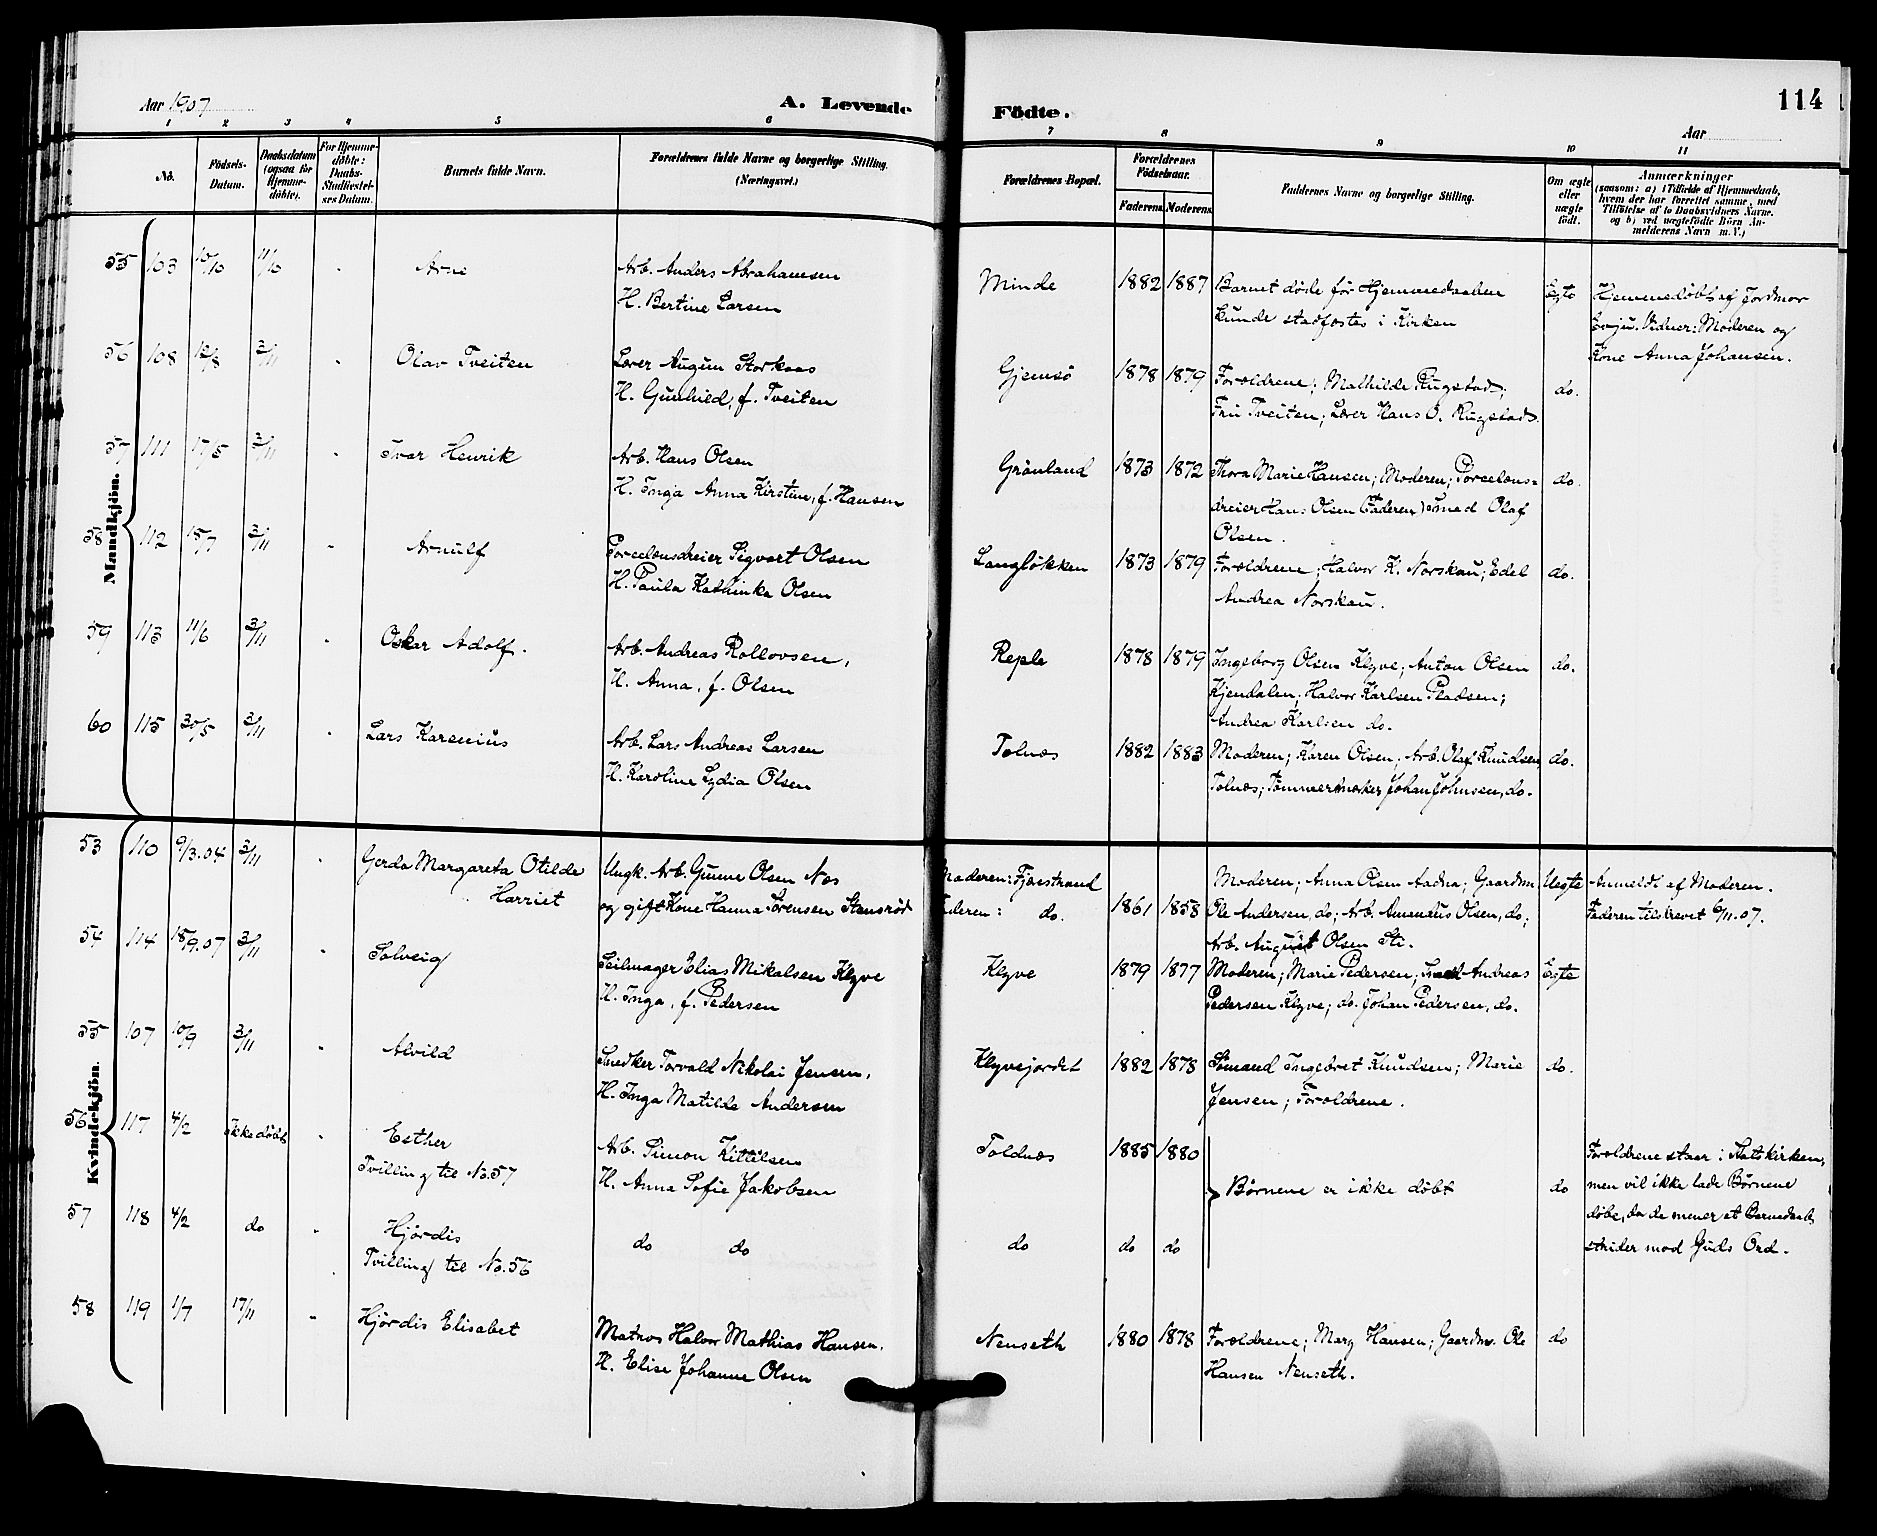 Aar 1907
A. Levende
Födte.
114
Aar
1 2 3 4 5 6 7 8 9 10 11
No.
Födsels-Datum.
Daabsdatum (ogsaa för Hjemme-döbte).
For Hjemme-döbte: Daabs-Stadfæstel-ses Datum.
Barnets fulde Navn.
Forældrenes fulde Navne og borgerlige Stilling. (Næringsvei.)
Forældrenes Bopæl.
Forældrenes Födselsaar.
Faderens. Moderens.
Faddernes Navne og borgerlige Stilling.
Om ægte eller uægte födt.
Anmærkninger
(saasom: a) i Tilfælde af Hjemmedaab,
hvem der har forrettet samme, med
Tilföielse af to Daabsvidners Navne.
og b) ved uægtefödte Börn An-
melderens Navn m. V.)
Mandkjön.
55 103 10/10 11/10 " Arne
Arb. Anders Abrahamsen
H. Bertine Larsen
Minde 1882 1887
Barnet døde før Hjemmedaaben
kunde stadfæstes i Kirken
Egte
Hjemmedøbt af Jordmor
Evju. Vidner: Moderen og
Kone Anna Johansen.
56 108 12/8 3/11 " Olav Tveiten
Lærer Augun Storkaas
H. Gunhild, f. Tveiten
Gjemsø 1878 1879
Forældrene; Mathilde Rugstad;
Fru Tveiten; Lærer Hans O. Rugstad.
do.
57 111 17/5 3/11 " Ivar Henrik
Arb. Hans Olsen
H. Inga Anna Kirstine, f. Hansen
Grønland 1873 1872
Thora Marie Hansen; Moderen; Porcelæns-
dreier Han: Olsen (Faderen) Olaf
Olsen.
do.
58 112 15/7 3/11 " Arnulf
Porcelænsdreier Sigvart Olsen
H. Paula Kathinka Olsen
Langløkken 1873 1879
Forældrene; Halvor K. Norskau; Edel
Andrea Norskau.
do.
59 113 11/6 3/11 " Oskar Adolf.
Arb. Andreas Rollovsen,
H. Anna, f. Olsen
Reple 1878 1879
Ingeborg Olsen Klyve; Anton Olsen
Kjendalen; Halvor Karlsen Pladsen;
Andrea Karlsen do.
do.
60 115 30/5 3/11 " Lars Karenius
Arb. Lars Andreas Larsen
H. Karoline Lydia Olsen
Tolnæs 1882 1883
Moderen; Karen Olsen; Arb. Olaf Knudsen,
Tolnæs; Tømmermærker Johan Johnsen, do.
do.
Kvindekjön.
53 110 9/3.04 3/11 " Gerda Margareta Otilde
Harriet
Ungk. Arb. Gunne Olsen Næs
og gift Kone Hanna Sørensen Stensrød
Moderen: Fjærestrand
Faderen: do.
1861 1858
Moderen; Anna Olsen Aadna; Gaardm.
Ole Andersen, do; Arb. Amandus Olsen, do;
Arb. August Olsen Sti.
Uegte
Anmeldt af Moderen.
Faderen tilskrevet 6/11.07.
54 114 18/9.07 3/11 " Solveig
Seilmager Elias Mikalsen Klyve
H. Inga, f. Pedersen
Klyve 1879 1877
Moderen; Marie Pedersen; Andreas
Pedersen Klyve; do. Johan Pedersen, do.
Egte
55 107 10/9 3/11 " Alvild
Snedker Torvald Nikolai Jensen,
H. Inga Matilde Andersen
Klyvejordet 1882 1878
Sømand Ingebret Knudsen; Marie
Jensen; Forældrene.
do.
56 117 4/2 ikke døbt " Esther
Tvilling til No. 57
Arb. Simon Kittilsen
H. Anna Sofie Jakobsen
Toldnæs 1885 1880
Børnene er ikke døbt
do
Forældrene staar i Statskirken,
men vil ikke lade Børnene
døbe, da de mener at Barnedaab
strider mod Guds Ord.
57 118 4/2 do " Hjørdis
Tvilling til No. 56
do do
do do do
58 119 1/7 17/11 " Hjørdis Elisabet
Matros Halvor Mathias Hansen.
H. Elise Johanne Olsen
Nenseth 1880 1878
Forældrene; Marg Hansen; Gaardm. Ole
Hansen Nenseth.
do